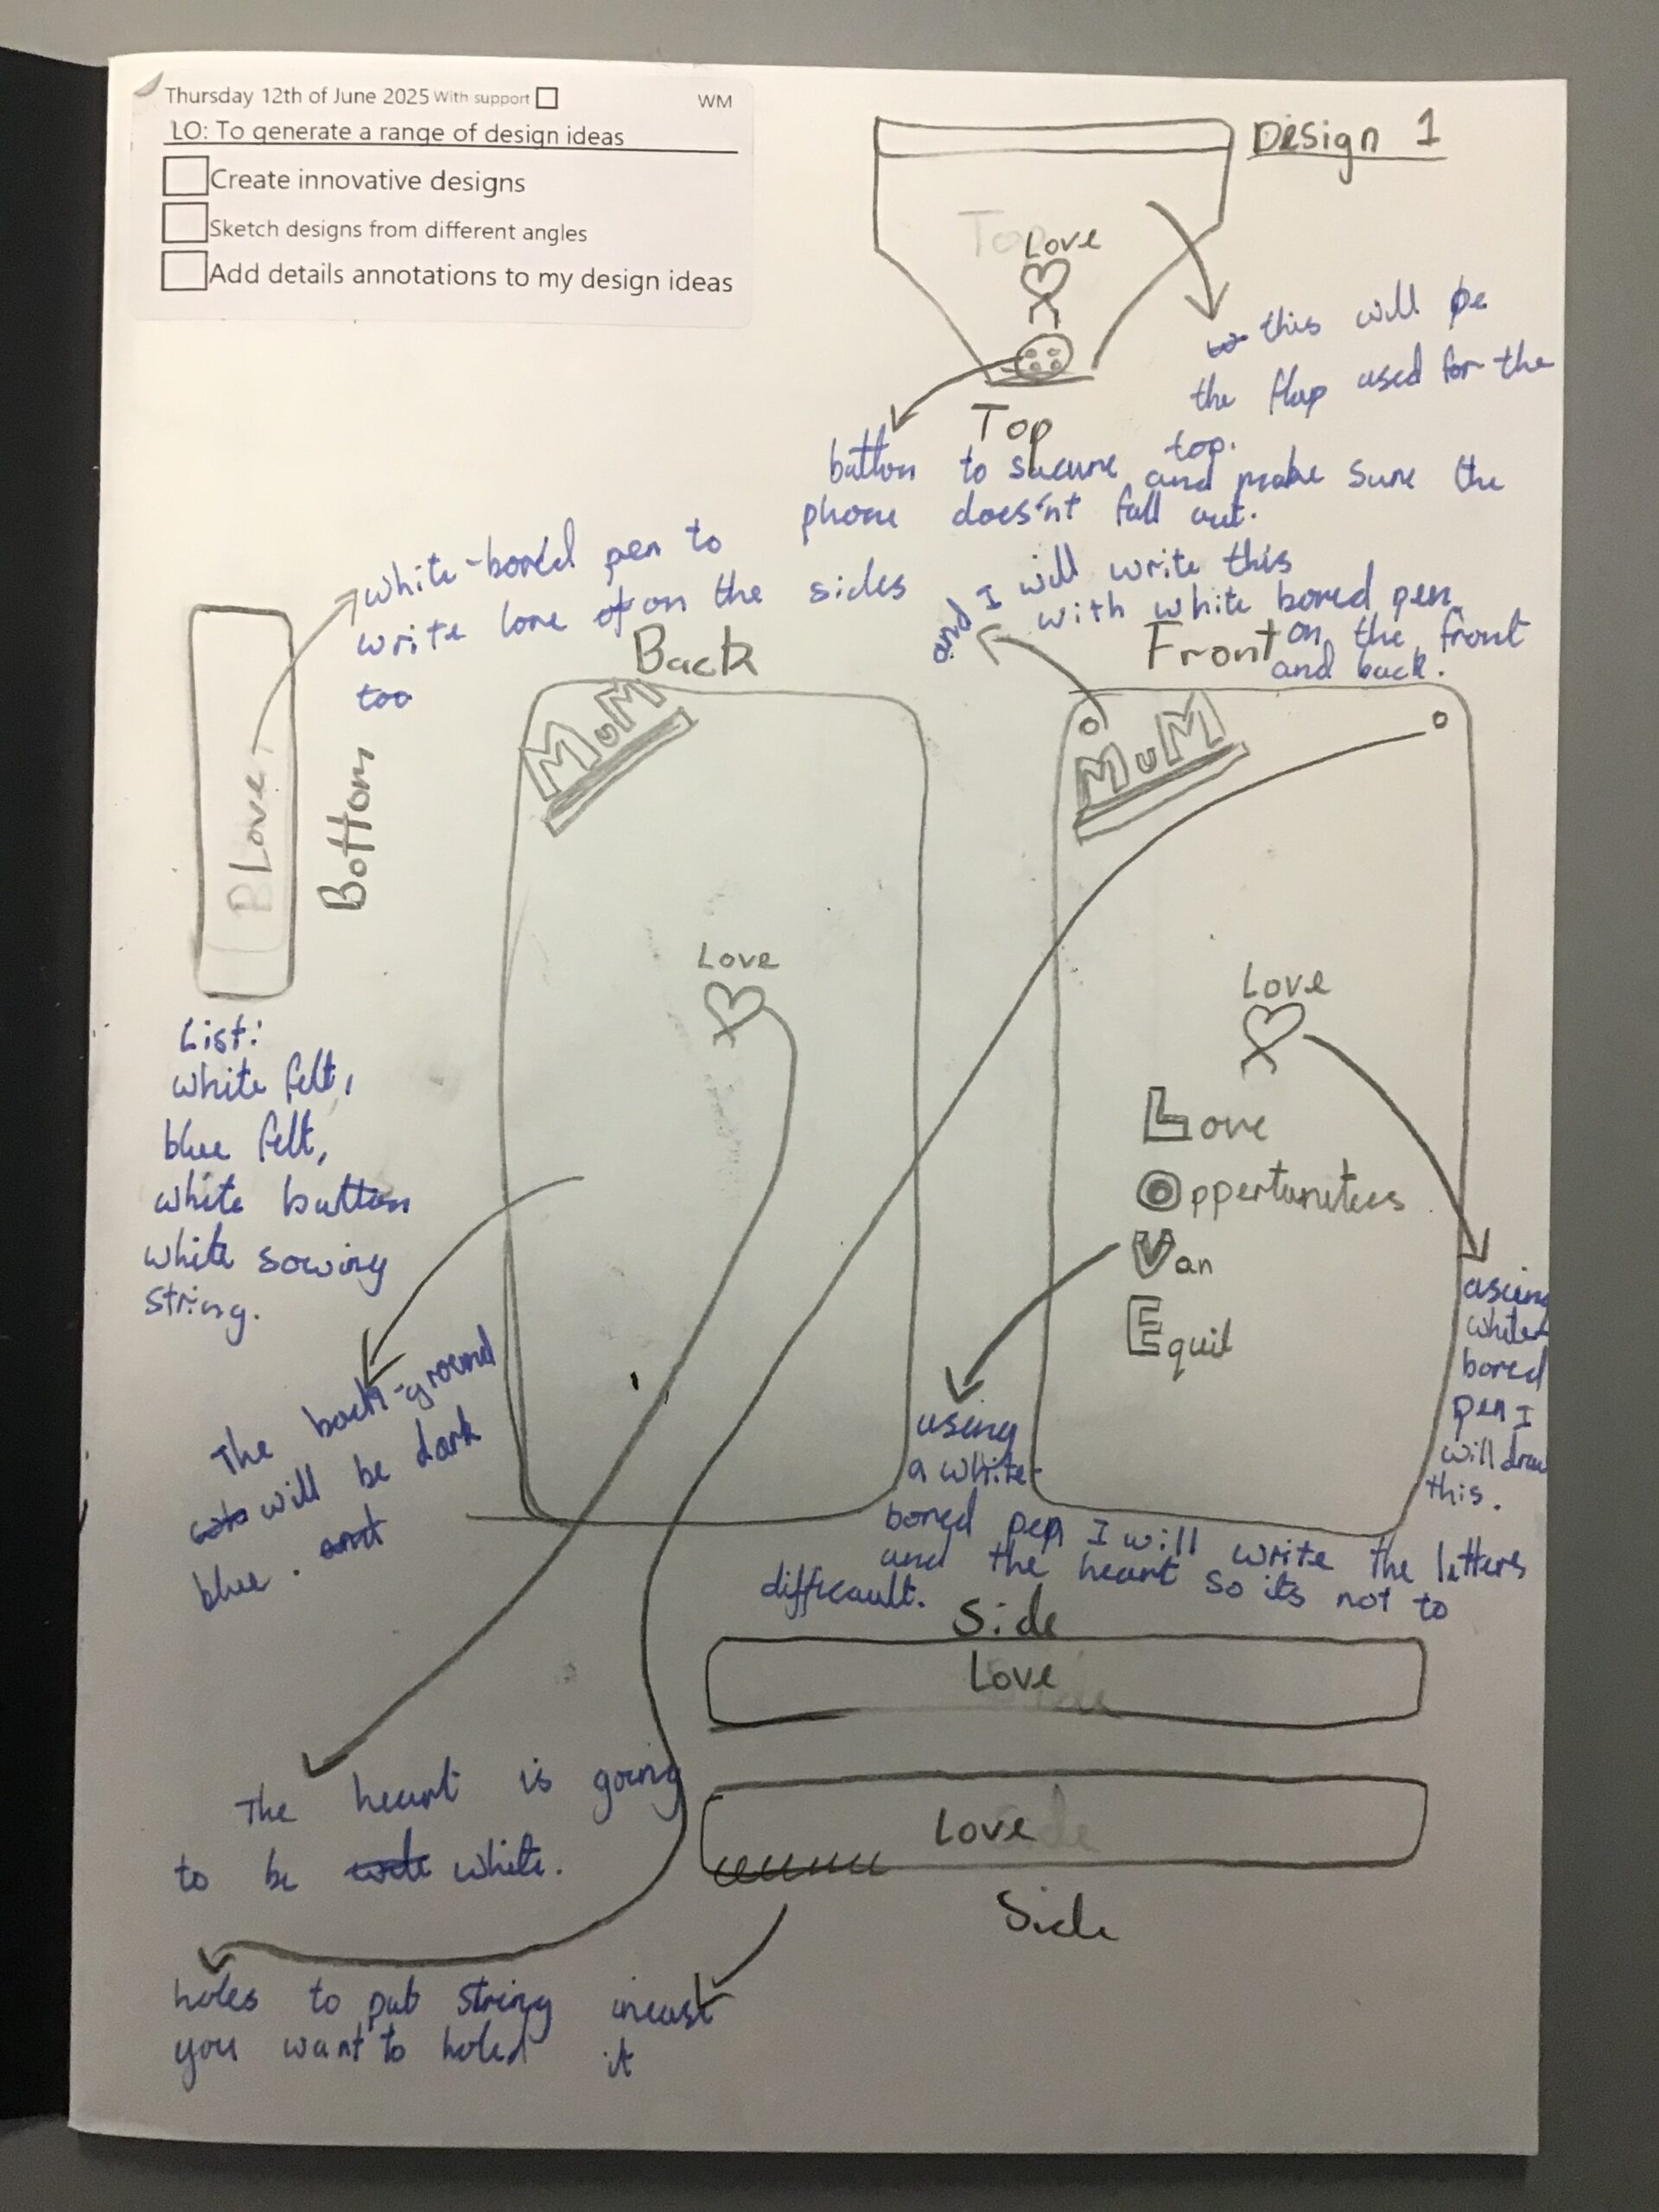 Thursday 12th of June 2025 With support WM
LO: To generate a range of design ideas
Create innovative designs
Sketch designs from different angles
Add details annotations to my design ideas
Design 1
Top
Love
this will be
the flap used for the
top.
Top
button to sucure and make sure the
phone does'nt fall out.
white-bored pen to
write love on the sides
too
and I will write this
with white bored pen
on the front
and back.
Back
Front
MuM
MuM
Love
Bottom
Love
Love
Love
Oppertunitees
Van
Equil
List:
white felt,
blue felt,
white button
white sowing
string.
The back-ground
will be dark
blue.
using
white
bored
pen I
will draw
this.
using
a white-
bored pen I will write the letters
and the heart so its not to
difficault.
Side
Love
The heart is going
to be white.
Love
Side
holes to put string incast
you want to holed it